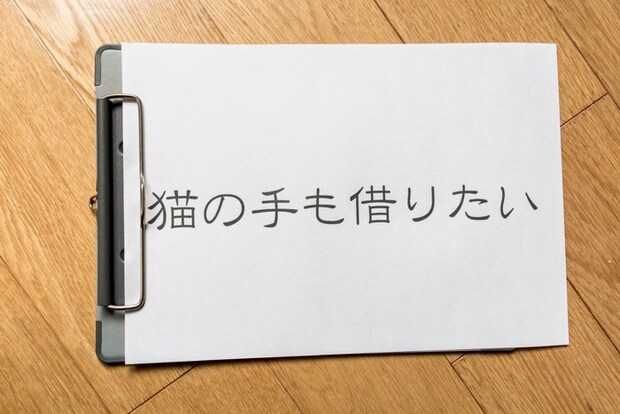 猫の手も借りたい